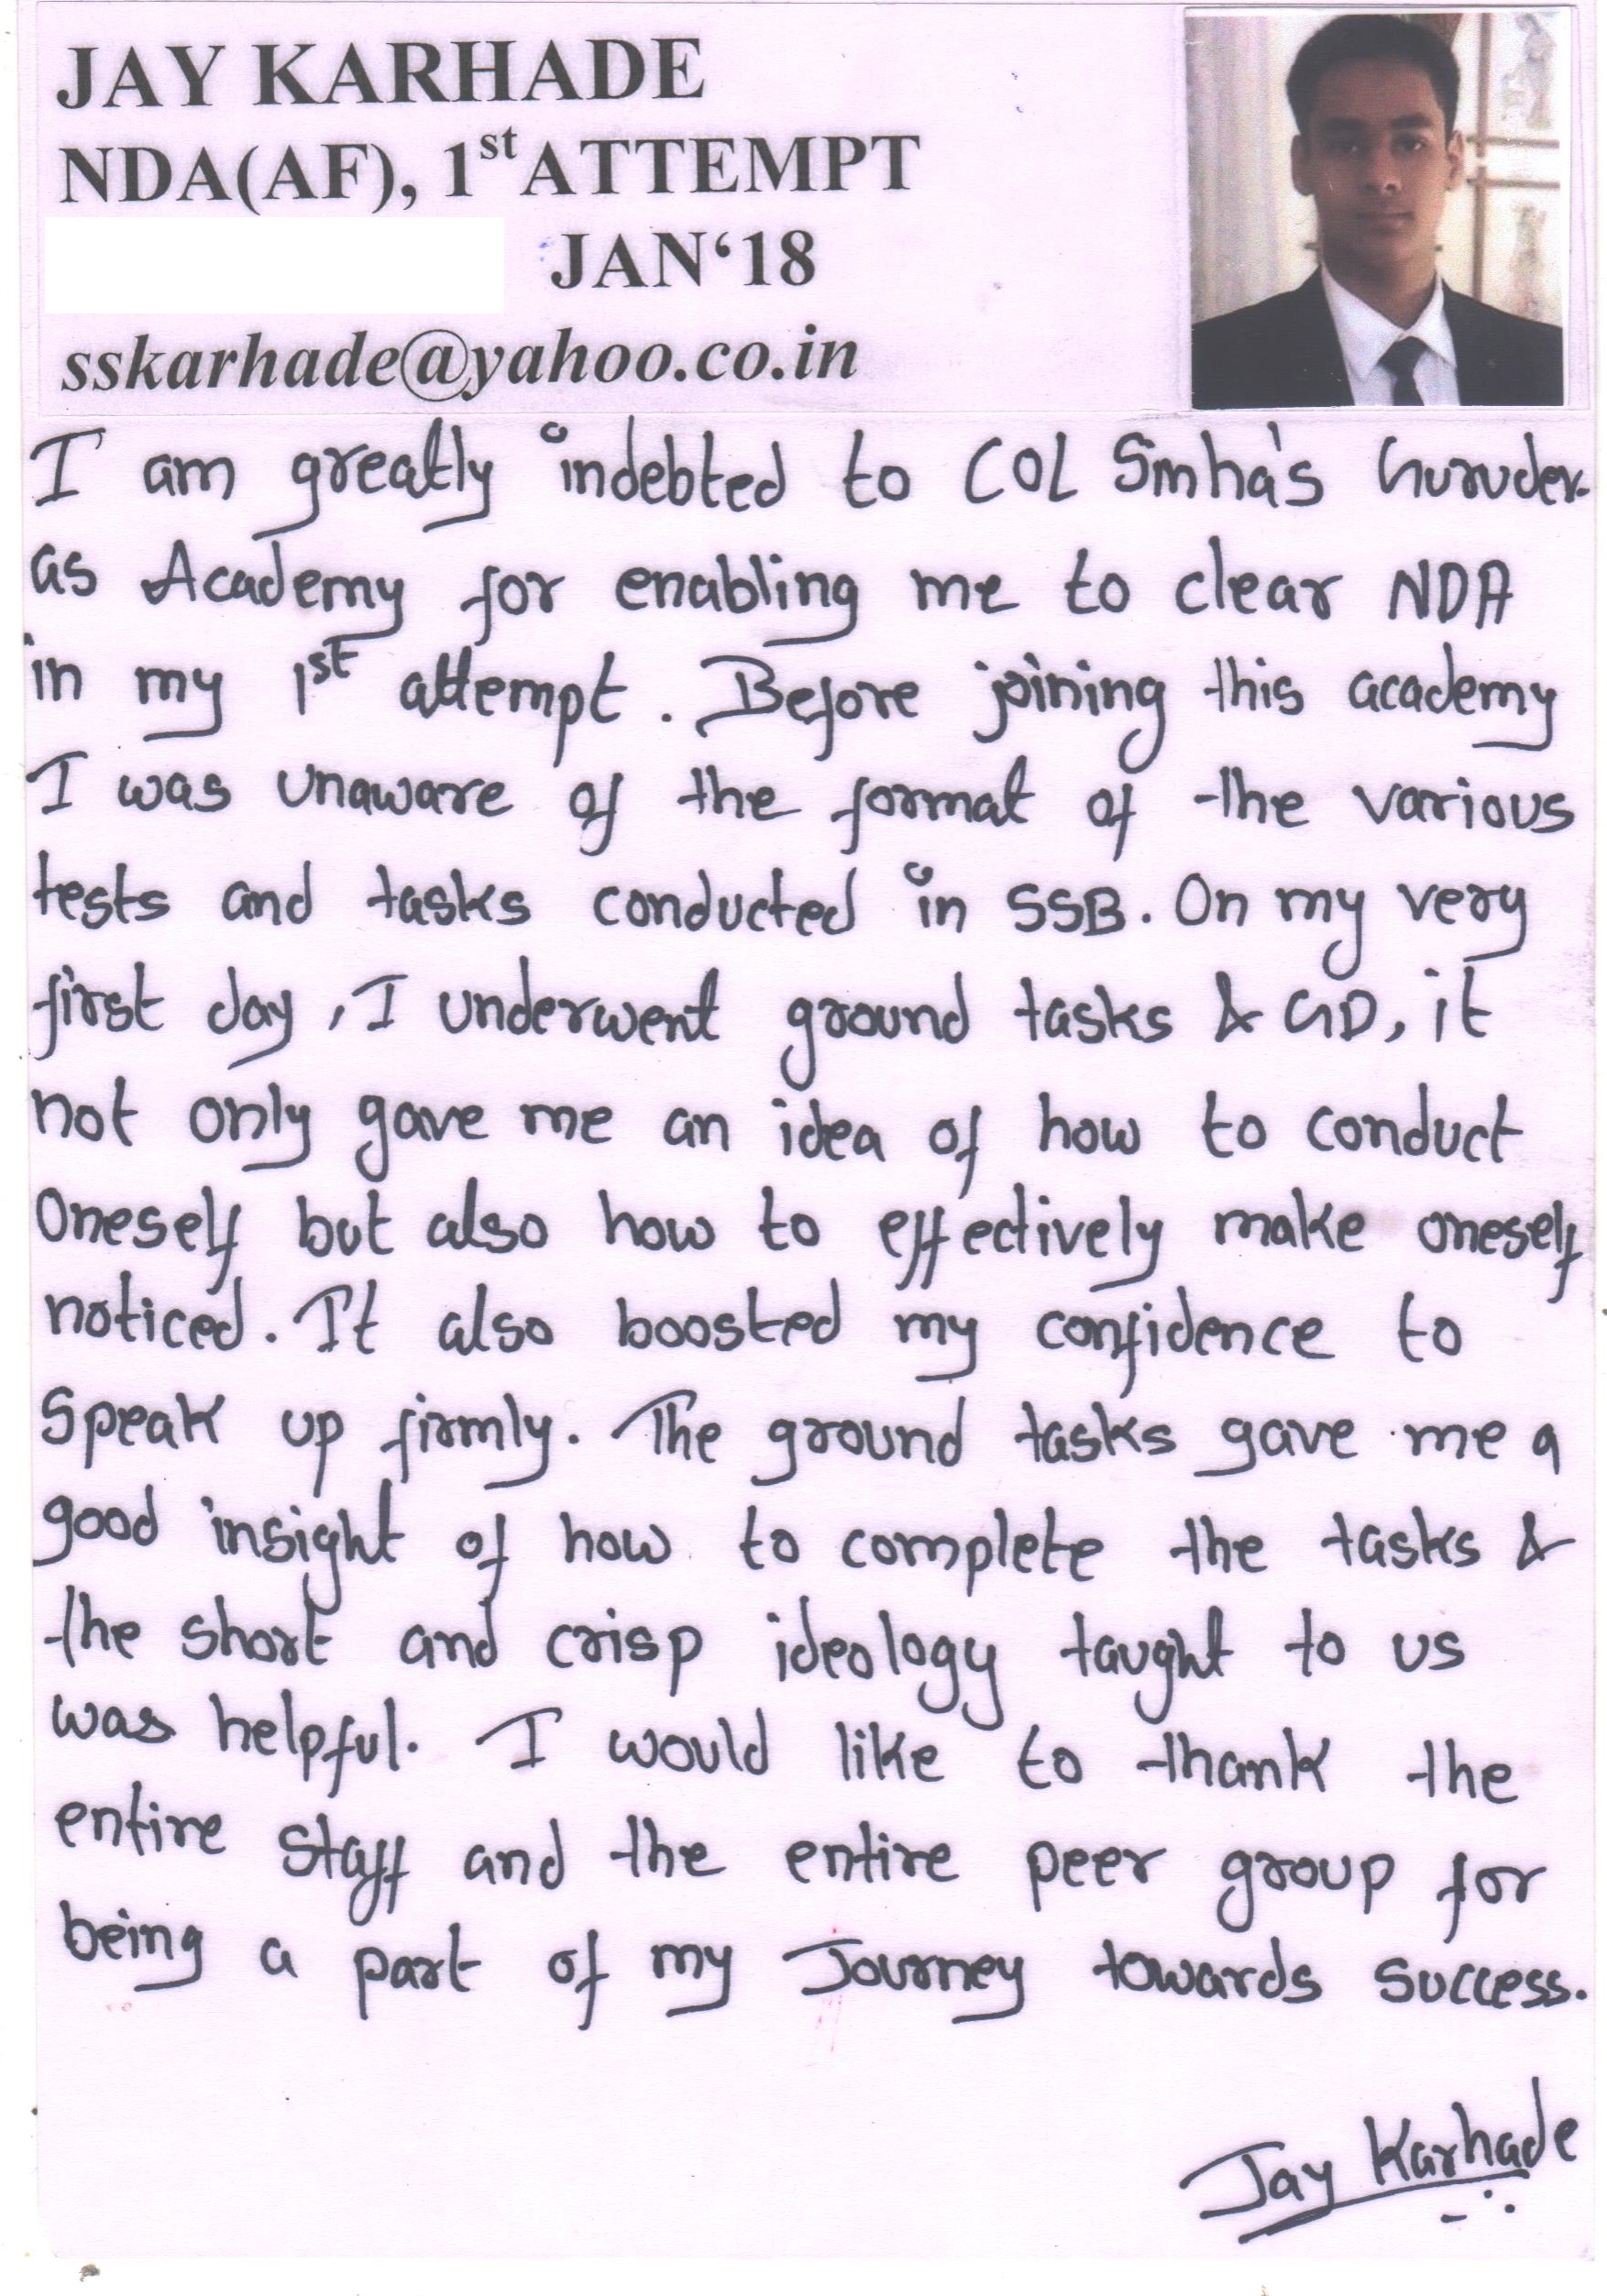 JAY KARHADE
NDA(AF), 1st ATTEMPT
JAN‘18
sskarhade@yahoo.co.in
I am greatly indebted to COL Sinha's Gurudev-
as Academy for enabling me to clear NDA
in my 1st attempt. Before joining this academy
I was unaware of the format of the various
tests and tasks conducted in SSB. On my very
first day, I underwent ground tasks & GD, it
not only gave me an idea of how to conduct
Oneself but also how to effectively make oneself
noticed. It also boosted my confidence to
Speak up firmly. The ground tasks gave me a
good insight of how to complete the tasks &
the short and crisp ideology taught to us
was helpful. I would like to thank the
entire staff and the entire peer group for
being a part of my Journey towards success.
Jay Karhade